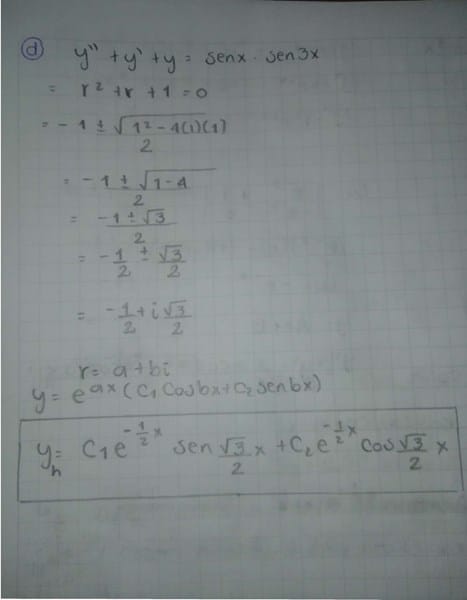 d y'' + y' + y = senx · sen3x
= r² + r + 1 = 0
= -1 ± √(1² - 4(1)(1)) / 2
= -1 ± √(1-4) / 2
= -1 ± √3 / 2
= -1/2 ± √3/2
= -1/2 + i √3/2
r = a + bi
y = e^ax (C₁ Cosbx + C₂ senbx)
y_h = C₁e^(-1/2 x) sen √3/2 x + C₂e^(-1/2 x) cos √3/2 x